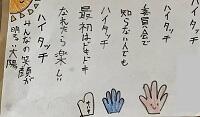 ハイタッチ
委員会で
知らない人でも
ハイタッチ
最初はドキドキ
なれたら楽しい
ハイタッチ
みんなの笑顔が
明るい太陽